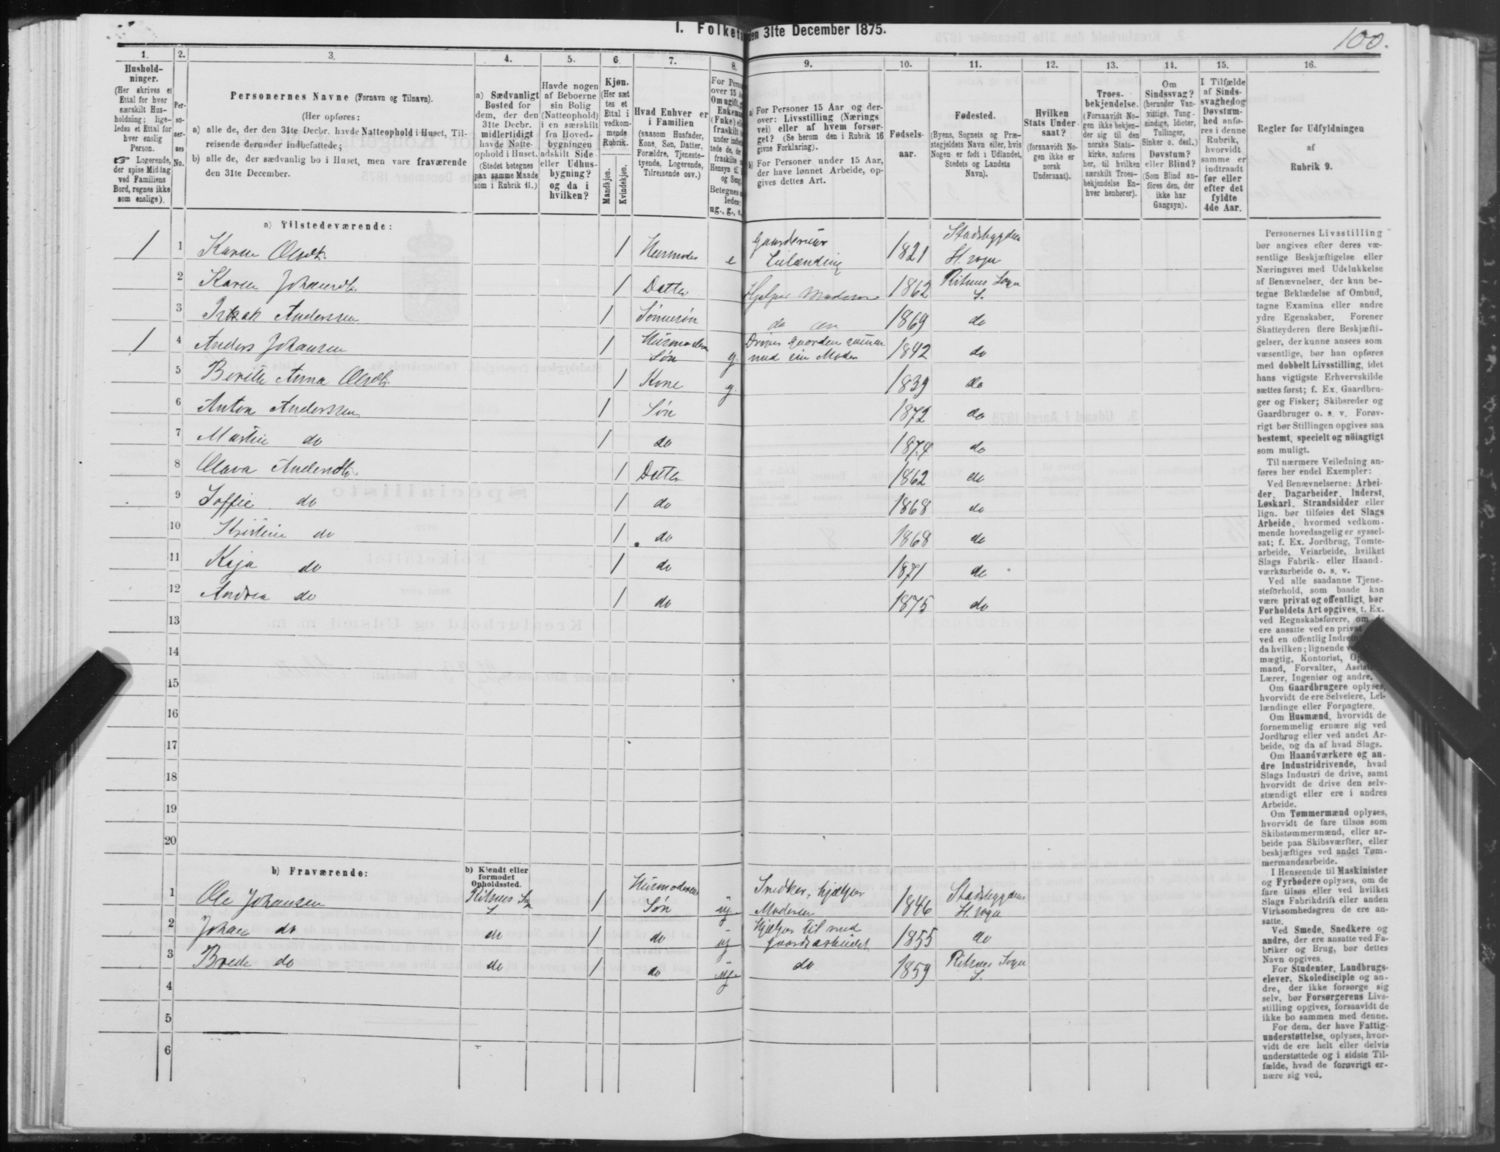 100.
I. Folket en 31te December 1875.
1.
2.
3.
4.
5.
6.
7.
8.
9.
10.
11.
12.
13.
14.
15.
16.
Hushold-
ninger.
(Her skrives et
Ettal for hver
særskilt Hus-
holdning; lige-
ledes et Ettal for
hver enslig
Person.
Logerende,
der spise Middag
ved Familiens
Bord, regnes ikke
som enslige).
Personernes Navne (Fornavn og Tilnavn).
(Her opføres:
a) alle de, der den 31te Decbr. havde Natteophold i Huset, Til-
reisende derunder indbefattede;
b) alle de, der sædvanlig bo i Huset, men vare fraværende
den 31te December.
a) Sædvanligt
Bosted for
dem, der den
31te Decbr.
midlertidigt
havde Natte-
ophold i Huset.
(Stedet betegnes
paa samme Maade
som i Rubrik 11.)
Havde nogen
af Beboerne
sin Bolig
(Natteophold)
i en særskilt
fra Hoved-
bygningen
adskilt Side-
eller Udhus-
bygning?
og da i
hvilken?
Kjøn.
(Her sæt-
tes et
Ettal i
vedkom-
mende
Rubrik.
Mandkjøn.
Kvindekjøn.
Hvad Enhver er
i Familien
(saasom Husfader,
Kone, Søn, Datter,
Forældre, Tjeneste-
tyende, Logerende,
Tilreisende osv.)
a) For Personer 15 Aar og der-
over: Livsstilling (Nærings
vei) eller af hvem forsør-
get? (Se herom den i Rubrik 16
givne Forklaring).
b) For Personer under 15 Aar,
der have lønnet Arbeide, op-
gives dettes Art.
Fødsels-
aar.
Fødested.
(Byens, Sognets og Præ-
stegjeldets Navn eller, hvis
Nogen er født i Udlandet,
Stedets og Landets
Navn).
Hvilken
Stats Under
saat?
(forsaavidt No-
gen ikke er
norsk
Undersaat).
Troes-
bekjendelse.
(Forsaavidt No-
gen ikke bekjen-
der sig til den
norske Stats-
kirke, anføres
her, til hvilken
Troes-
bekjendelse En-
hver henhører).
Om
Sindssvag?
(herunder Van-
vittige, Tung-
sindige, Idioter,
Tullinger,
Sinker o. desl.)
Døvstum?
eller Blind?
(Som Blind an-
føres den, der
ikke har
Gangsyn).
I Tilfælde
af Sinds-
svaghed og
Døvstum-
hed anfø-
res i denne
Rubrik,
hvorvidt
samme er
indtraadt
før eller
efter det
fyldte
4de Aar.
Regler for Udfyldningen
af
Rubrik 9.
a) Tilstedeværende:
1 1 Karen Olsdt. 1 Husmoder e Gaardbruger Leilænding 1821 Stadsbygden H. sogn
2 Karen Johansdt. 1 Datter Hjelper Moderen 1862 Ritsnes Sogn S.
3 Isak Anderssen 1 Sønnesøn do 1869 do
1 4 Anders Johansen 1 Husmoderen Søn g Driver Gaarden med sin Moder 1842 do
5 Berith Anna Olsdt. 1 Kone g. 1839 do
6 Anton Anderssen 1 Søn 1872 do
7 Martin do 1 do 1874 do
8 Olava Andersdt. 1 Datter 1862 do
9 Soffie do 1 do 1868 do
10 Kristine do 1 do 1868 do
11 Kaja do 1 do 1871 do
12 Andrea do 1 do 1875 do
13
14
15
16
17
18
19
20
b) Fraværende:
b) Kjendt eller
formodet
Opholdssted.
1 Ole Johansen Ritsnes S. 1 Husmoderens Søn ug Snedker, hjelper Moderen 1846 Stadsbygden H. sogn
2 Johan do do 1 do ug Hjelper til med Gaardsarbeidet 1855 do
3 Brede do do 1 do ug do 1859 Ritsnes Sogn S.
4
5
6
Personernes Livsstilling
bør angives efter deres væ-
sentlige Beskjæftigelse eller
Næringsvei med Udelukkelse
af Benævnelser, der kun be-
tegne Beklædelse af Ombud,
tagne Examina eller andre
ydre Egenskaber. Forener
Skatteyderen flere Beskjæfti-
gelser, der kunne ansees som
væsentlige, bør han opføres
med dobbelt Livsstilling, idet
hans vigtigste Erhvervskilde
sættes først; f. Ex. Gaardbru-
ger og Fisker; Skibsreder og
Gaardbruger o. s. v. Forøv-
rigt bør Stillingen opgives saa
bestemt, specielt og nøiagtigt
som muligt.
Til nærmere Veiledning an-
føres her endel Exempler:
Ved Benævnelserne: Arbei-
der, Dagarbeider, Inderst,
Løskarl, Strandsidder eller
lign. bør tilføies det Slags
Arbeide, hvormed vedkom-
mende hovedsagelig er syssel-
sat; f. Ex. Jordbrug, Tomte-
arbeide, Veiarbeide, hvilket
Slags Fabrik- eller Haand-
værksarbeide o. s. v.
Ved alle saadanne Tjene-
steforhold, som baade kan
være privat og offentligt, bør
Forholdets Art opgives, t. Ex.
ved Regnskabsførere, om de
ere ansatte ved en privat
ved en offentlig Indre
da hvilken; lignende
mægtig, Kontorist, Op
mand, Forvalter, Assis
Lærer, Ingeniør og andre.
Om Gaardbrugere oplyses,
hvorvidt de ere Selveiere, Lei-
lændinge eller Forpagtere.
Om Husmænd, hvorvidt de
fornemmelig ernære sig ved
Jordbrug eller ved andet Ar-
beide, og da af hvad Slags.
Om Haandværkere og an-
dre Industridrivende, hvad
Slags Industri de drive, samt
hvorvidt de drive den selv-
stændigt eller ere i andres
Arbeide.
Om Tømmermænd oplyses,
hvorvidt de fare tilsøs som
Skibstømmermænd, eller ar-
beide paa Skibsværfter, eller
beskjæftiges ved andet Tøm-
mermandsarbeide.
I Henseende til Maskinister
og Fyrbødere oplyses, om de
fare tilsøs eller ved hvilket
Slags Fabrikdrift eller anden
Virksomhedsgren de ere an-
satte.
Ved Smede, Snedkere og
andre, der ere ansatte ved Fa-
briker og Brug, bør dettes
Navn opgives.
For Studenter, Landbrugs-
elever, Skoledisciple og an-
dre, der ikke forsørge sig
selv, bør Forsørgerens Livs-
stilling opgives, forsaavidt de
ikke bo sammen med denne.
For dem, der have Fattig-
understøttelse, oplyses, hvor-
vidt de ere helt eller delvis
understøttede og i sidste Til-
fælde, hvad de forøvrigt er-
nære sig ved.